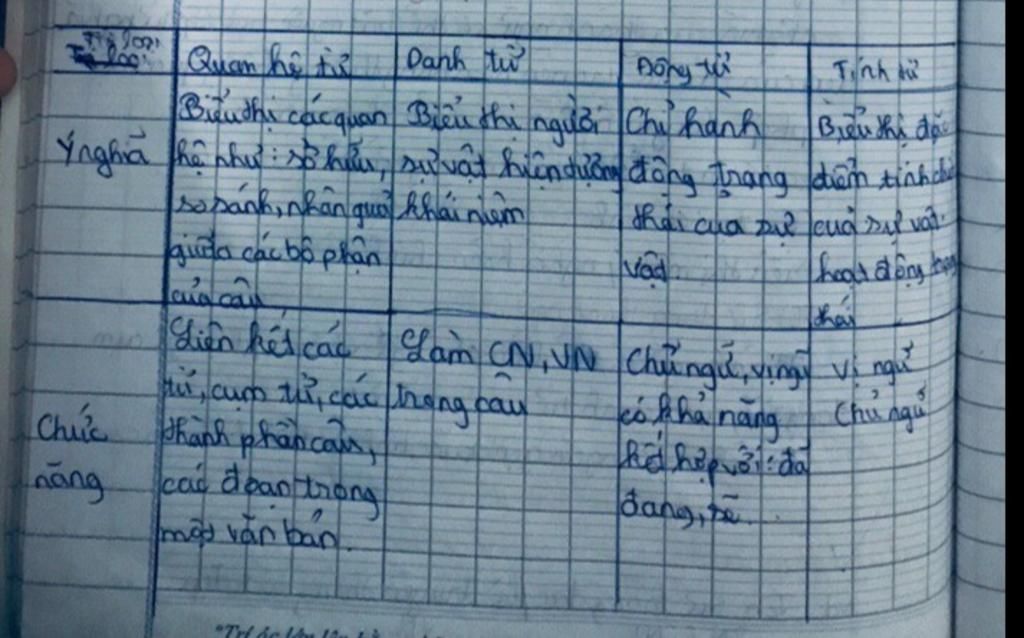 Từ loại Quan hệ từ Danh từ Động từ Tính từ
Ý nghĩa
Biểu thị các quan
hệ như: sở hữu,
so sánh, nhân quả
giữa các bộ phận
của câu
Biểu thị người
sự vật hiện tượng
khái niệm
Chỉ hành
động trạng
thái của sự
vật
Biểu thị đặc
điểm tính chất
của sự vật
hoạt động trạng
thái
Chức
năng
Liên kết các
từ, cụm từ, các
thành phần câu,
các đoạn trong
một văn bản.
Làm CN, VN
trong câu
Chủ ngữ, vị ngữ
có khả năng
kết hợp với: đã
đang, sẽ.
Vị ngữ
Chủ ngữ